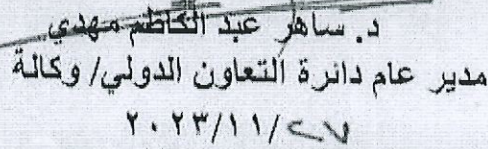 د. ساهر عبد الكاظم مهدي
مدير عام دائرة التعاون الدولي/ وكالة
٢٠٢٣/١١/٢٧